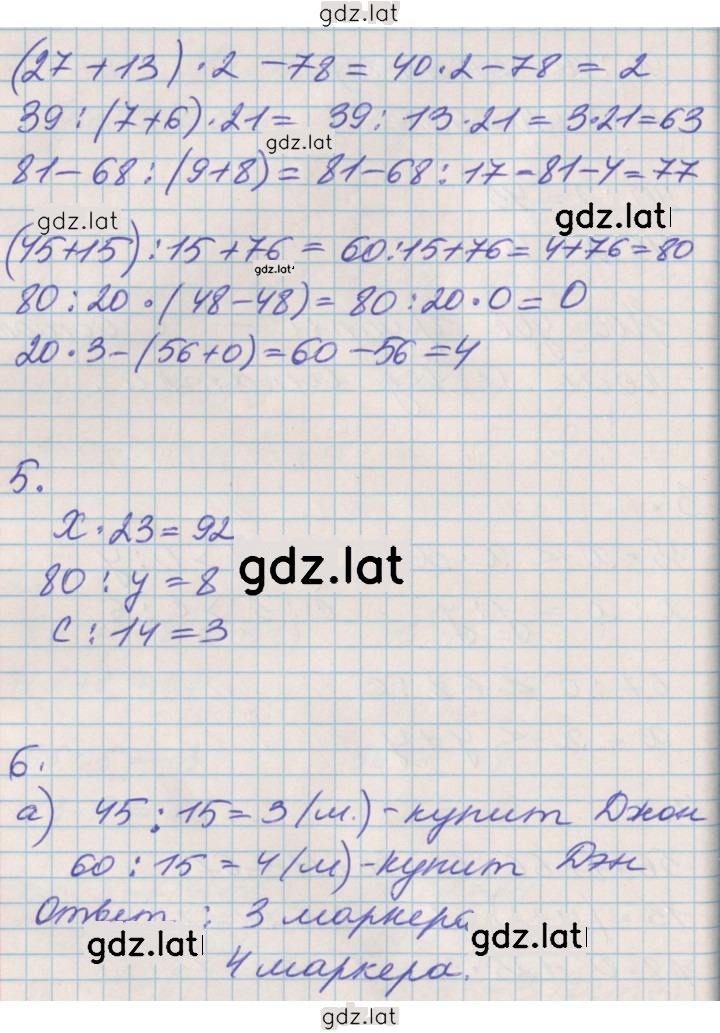 gdz.lat
(27+13)·2-78=40·2-78=2
39:(7+6)·21= 39:13·21=3·21=63
gdz.lat
81-68:(9+8)=81-68:17=81-4=77
gdz.lat gdz.lat
(45+15):15+76=60:15+76=4+76=80
gdz.lat
80:20·(48-48)=80:20·0=0
20·3-(56+0)=60-56=4
5.
x·23=92
gdz.lat
80:y=8
c:14=3
6.
а) 45:15=3(м.)-купит Джон
60:15=4(м)-купит Дэн
Ответ: 3 маркера
gdz.lat gdz.lat
4 маркера.
gdz.lat